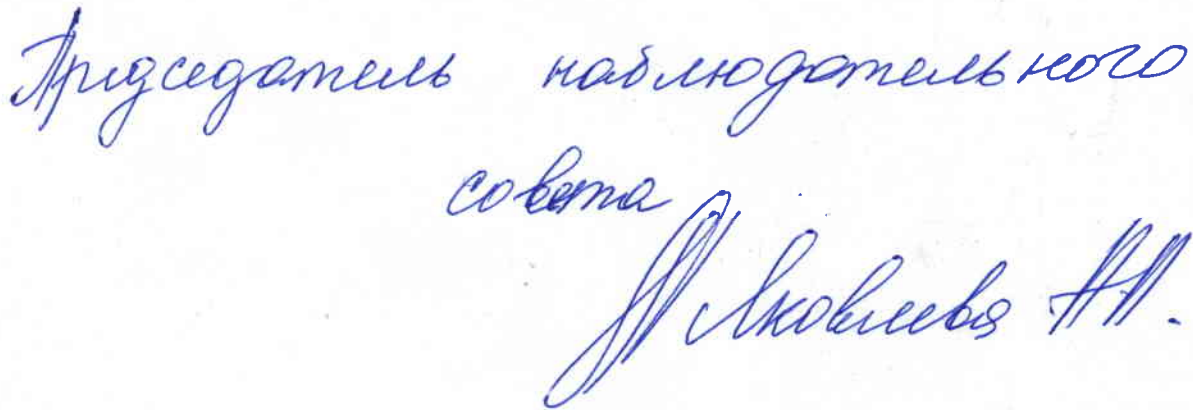 Председатель наблюдательного
совета
Яковлева